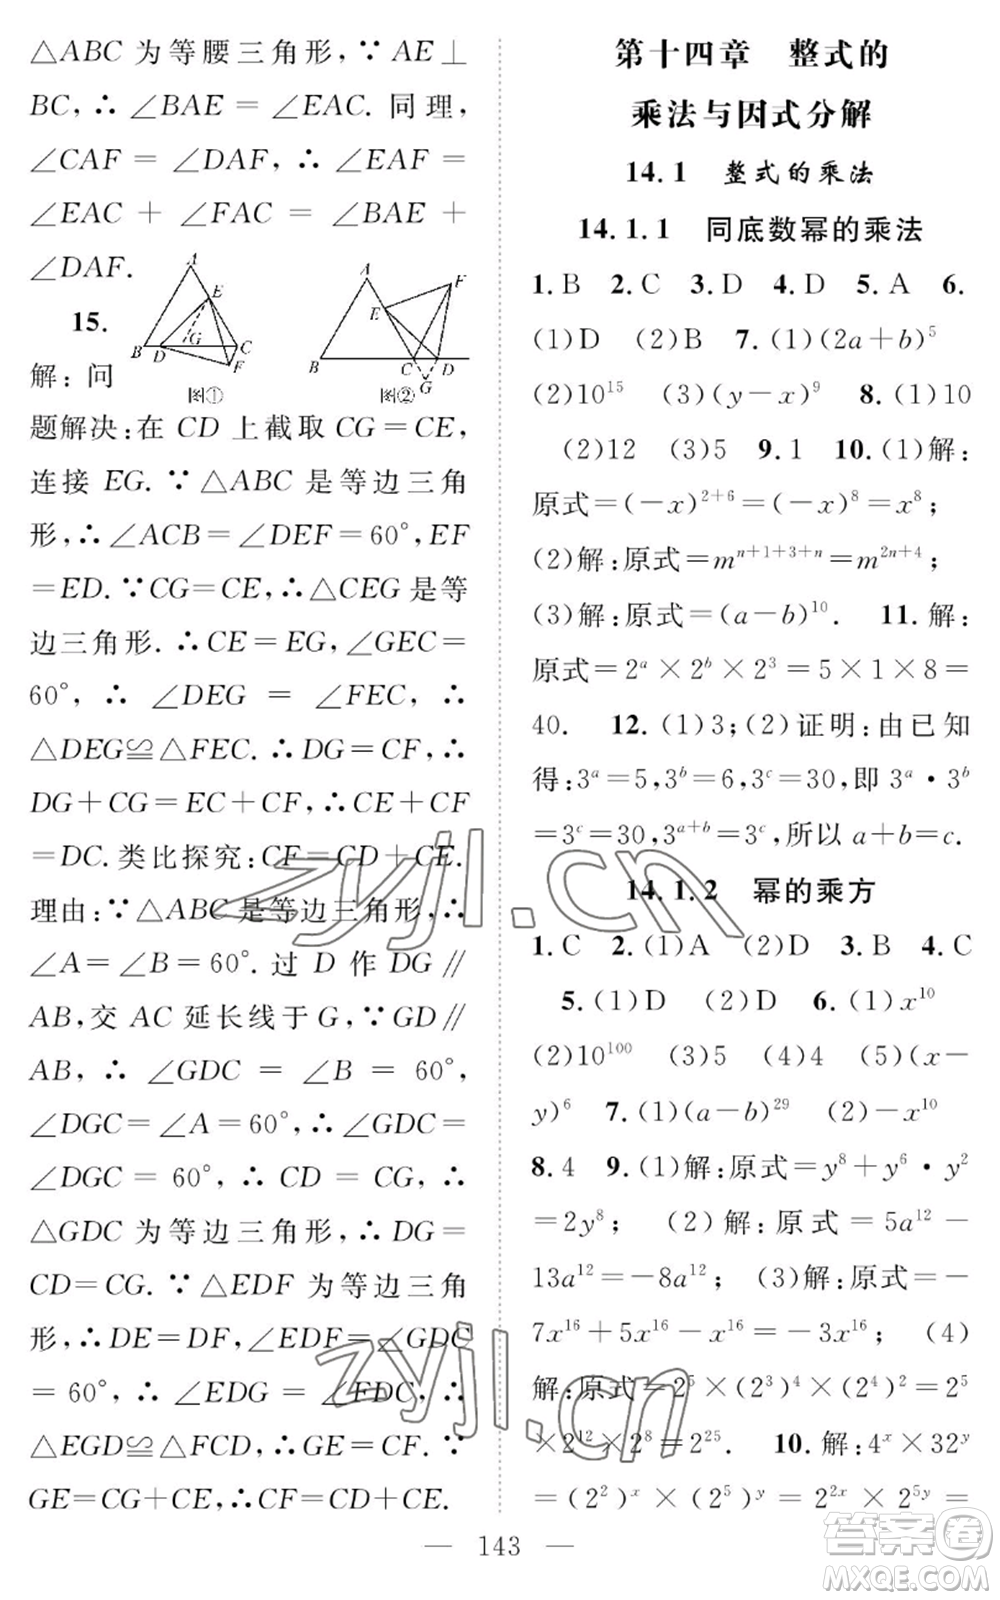 △ABC 为等腰三角形,∵AE⊥
BC,∴∠BAE=∠EAC. 同理,
∠CAF=∠DAF,∴∠EAF=
∠EAC+∠FAC=∠BAE+
∠DAF.
A E B D G C F 图①
A F E B C D G 图②
15.
解:问
题解决:在 CD 上截取 CG=CE,
连接 EG.∵△ABC 是等边三角
形,∴∠ACB=∠DEF=60°,EF
=ED.∵CG=CE,∴△CEG 是等
边三角形.∴CE=EG,∠GEC=
60°,∴∠DEG=∠FEC,∴
△DEG≌△FEC.∴DG=CF,∴
DG+CG=EC+CF,∴CE+CF
=DC.类比探究:CF=CD+CE.
理由:∵△ABC是等边三角形,∴
∠A=∠B=60°.过 D 作 DG∥
AB,交 AC 延长线于 G,∵GD∥
AB,∴∠GDC=∠B=60°,
∠DGC=∠A=60°,∴∠GDC=
∠DGC=60°,∴CD=CG,∴
△GDC 为等边三角形,∴DG=
CD=CG.∵△EDF 为等边三角
形,∴DE=DF,∠EDF=∠GDC
=60°,∴∠EDG=∠EDC,∴
△EGD≌△FCD,∴GE=CF.∵
GE=CG+CE,∴CF=CD+CE.
第十四章 整式的
乘法与因式分解
14.1 整式的乘法
14.1.1 同底数幂的乘法
1.B 2.C 3.D 4.D 5.A 6.
(1)D (2)B 7.(1)(2a+b)⁵
(2)10¹⁵ (3)(y-x)⁹ 8.(1)10
(2)12 (3)5 9.1 10.(1)解:
原式=(-x)²⁺⁶=(-x)⁸=x⁸;
(2)解:原式=mⁿ⁺¹⁺³⁺ⁿ=m²ⁿ⁺⁴;
(3)解:原式=(a-b)¹⁰. 11.解:
原式=2ᵃ×2ᵇ×2³=5×1×8=
40. 12.(1)3;(2)证明:由已知
得:3ᵃ=5,3ᵇ=6,3ᶜ=30,即 3ᵃ·3ᵇ
=3ᶜ=30,3ᵃ⁺ᵇ=3ᶜ,所以 a+b=c.
14.1.2 幂的乘方
1.C 2.(1)A (2)D 3.B 4.C
5.(1)D (2)D 6.(1)x¹⁰
(2)10¹⁰⁰ (3)5 (4)4 (5)(x-
y)⁶ 7.(1)(a-b)²⁹ (2)-x¹⁰
8.4 9.(1)解:原式=y⁸+y⁶·y²
=2y⁸; (2)解:原式=5a¹²-
13a¹²=-8a¹²; (3)解:原式=-
7x¹⁶+5x¹⁶-x¹⁶=-3x¹⁶; (4)
解:原式=2⁵×(2³)⁴×(2⁴)²=2⁵
×2¹²×2⁸=2²⁵. 10.解:4ˣ×32ʸ
=(2²)ˣ×(2⁵)ʸ=2²ˣ×2⁵ʸ=
— 143 —
zyjl.cn
zyjl.cn
答案圈
MXQE.COM